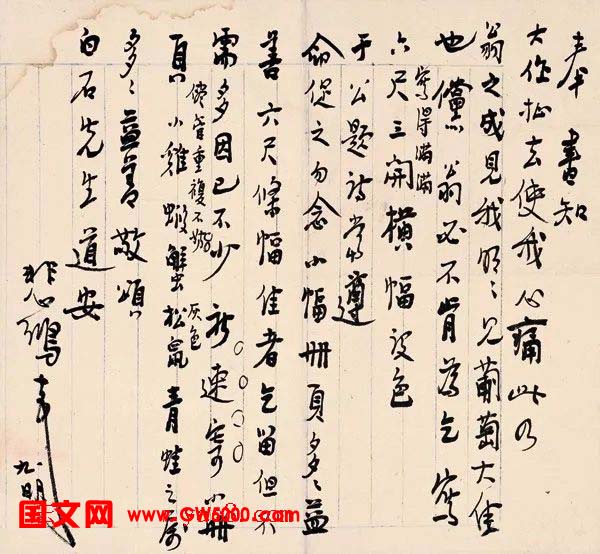 奉書知
大作扯去使我心痛此乃
翁之成見我明ミ見葡萄大佳
也儻翁必不肯為乞寫
寫得滿滿
六尺三開橫幅設色
于公題詩當遵
命促之勿念小幅冊頁多ミ益
善六尺條幅佳者乞留但不
需多因已不少祈速寄小冊
儘管重複不妨
頁小雞蝦蟹松鼠青蛙之屬
灰色
多ミ益善敬頌
白石先生道安
悲鴻
国文网 www.GW5000.com